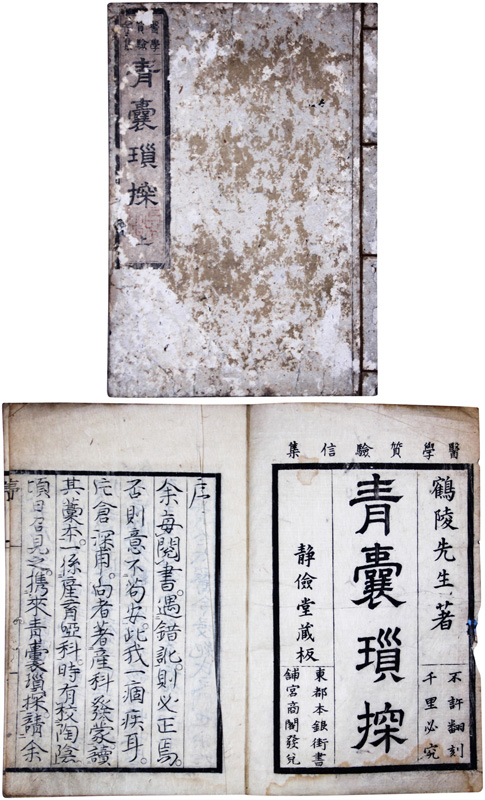 醫學
質驗
青囊瑣探
上
醫學質驗信集
鶴陵先生著
不許翻刻
千里必究
青囊瑣探
静儉堂藏板
東都本銀街書
舖宮商閣發兌
序
余每閲書。遇錯訛。則必正焉。
否則意不苟安。此我一痼疾耳。
片倉深甫。向者著産科發蒙。讀
其藁本。一係産育啞科。時有校陶陰
見之。携來青囊瑣探。請余
序